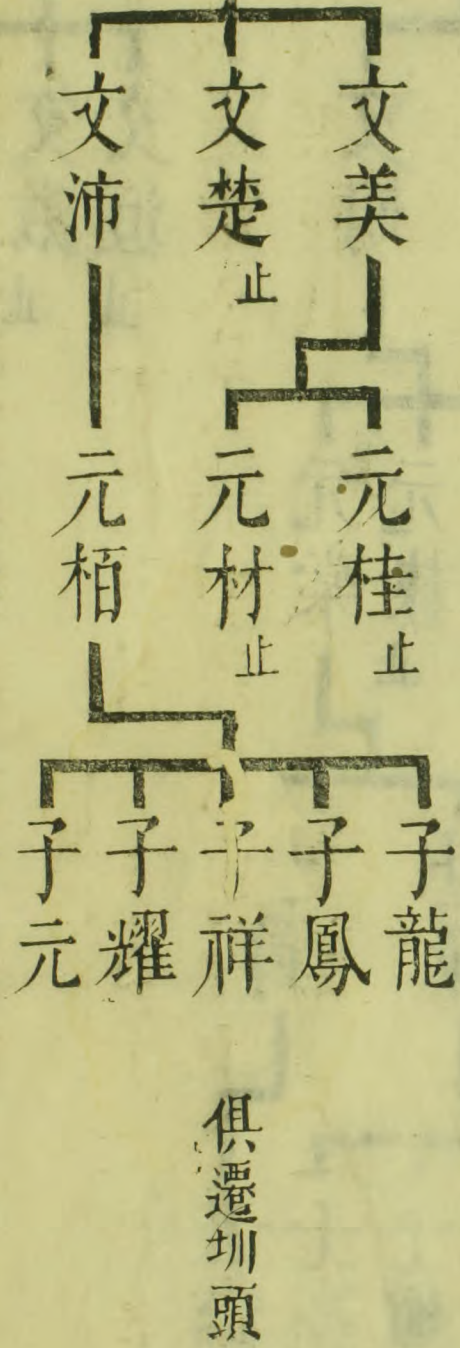 文美
文楚止
文沛
元桂止
元材止
元栢
子龍
子鳳
子祥
子耀
子元
俱遷圳頭